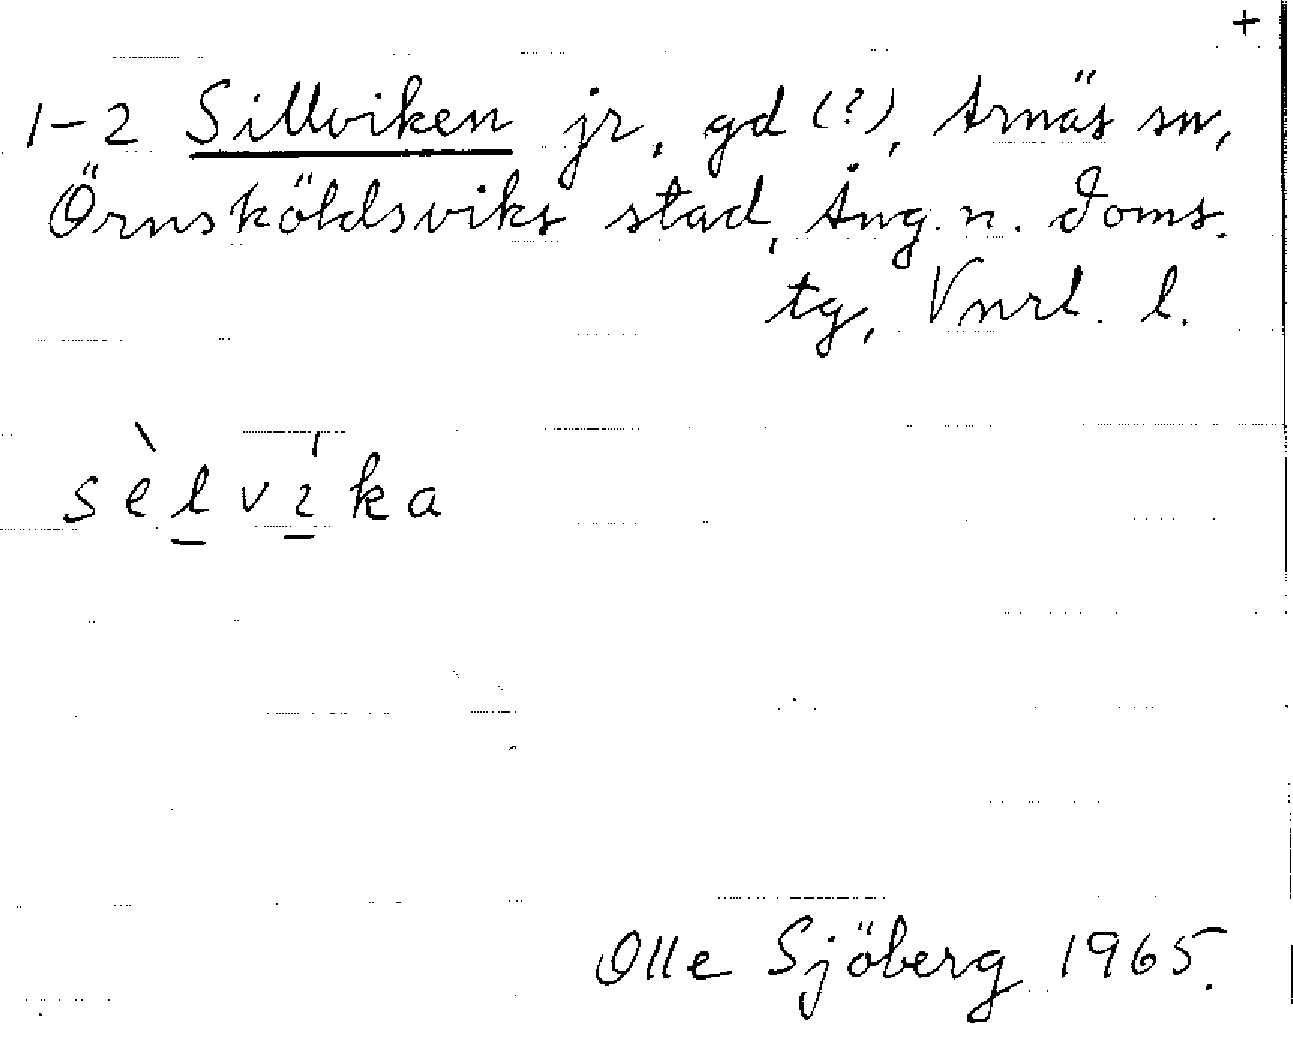 +
1-2 Sillviken jr, gd (?), Arnäs sn,
Örnsköldsviks stad, Ång. n. Doms.
tg, Vnrl. l.
sèlvika
Olle Sjöberg 1965.